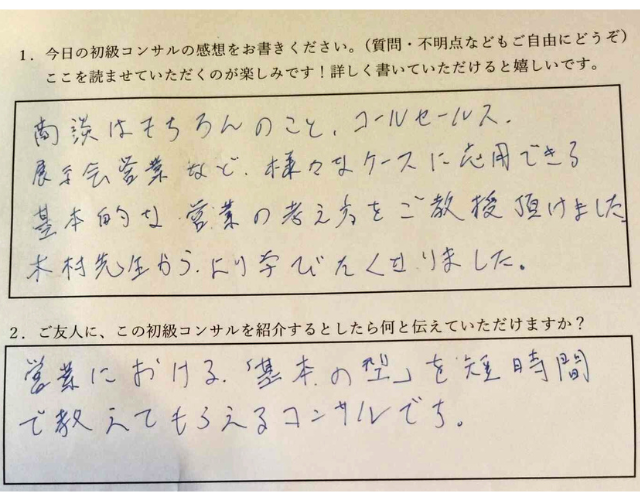 1．今日の初級コンサルの感想をお書きください。（質問・不明点などもご自由にどうぞ）
ここを読ませていただくのが楽しみです！詳しく書いていただけると嬉しいです。
商談はもちろんのこと、コールセールス、
展示会営業など、様々なケースに応用できる
基本的な営業の考え方をご教授頂けました
木村先生から、より学びたくなりました。
2．ご友人に、この初級コンサルを紹介するとしたら何と伝えていただけますか？
営業における、「基本の型」を短時間
で教えてもらえるコンサルです。